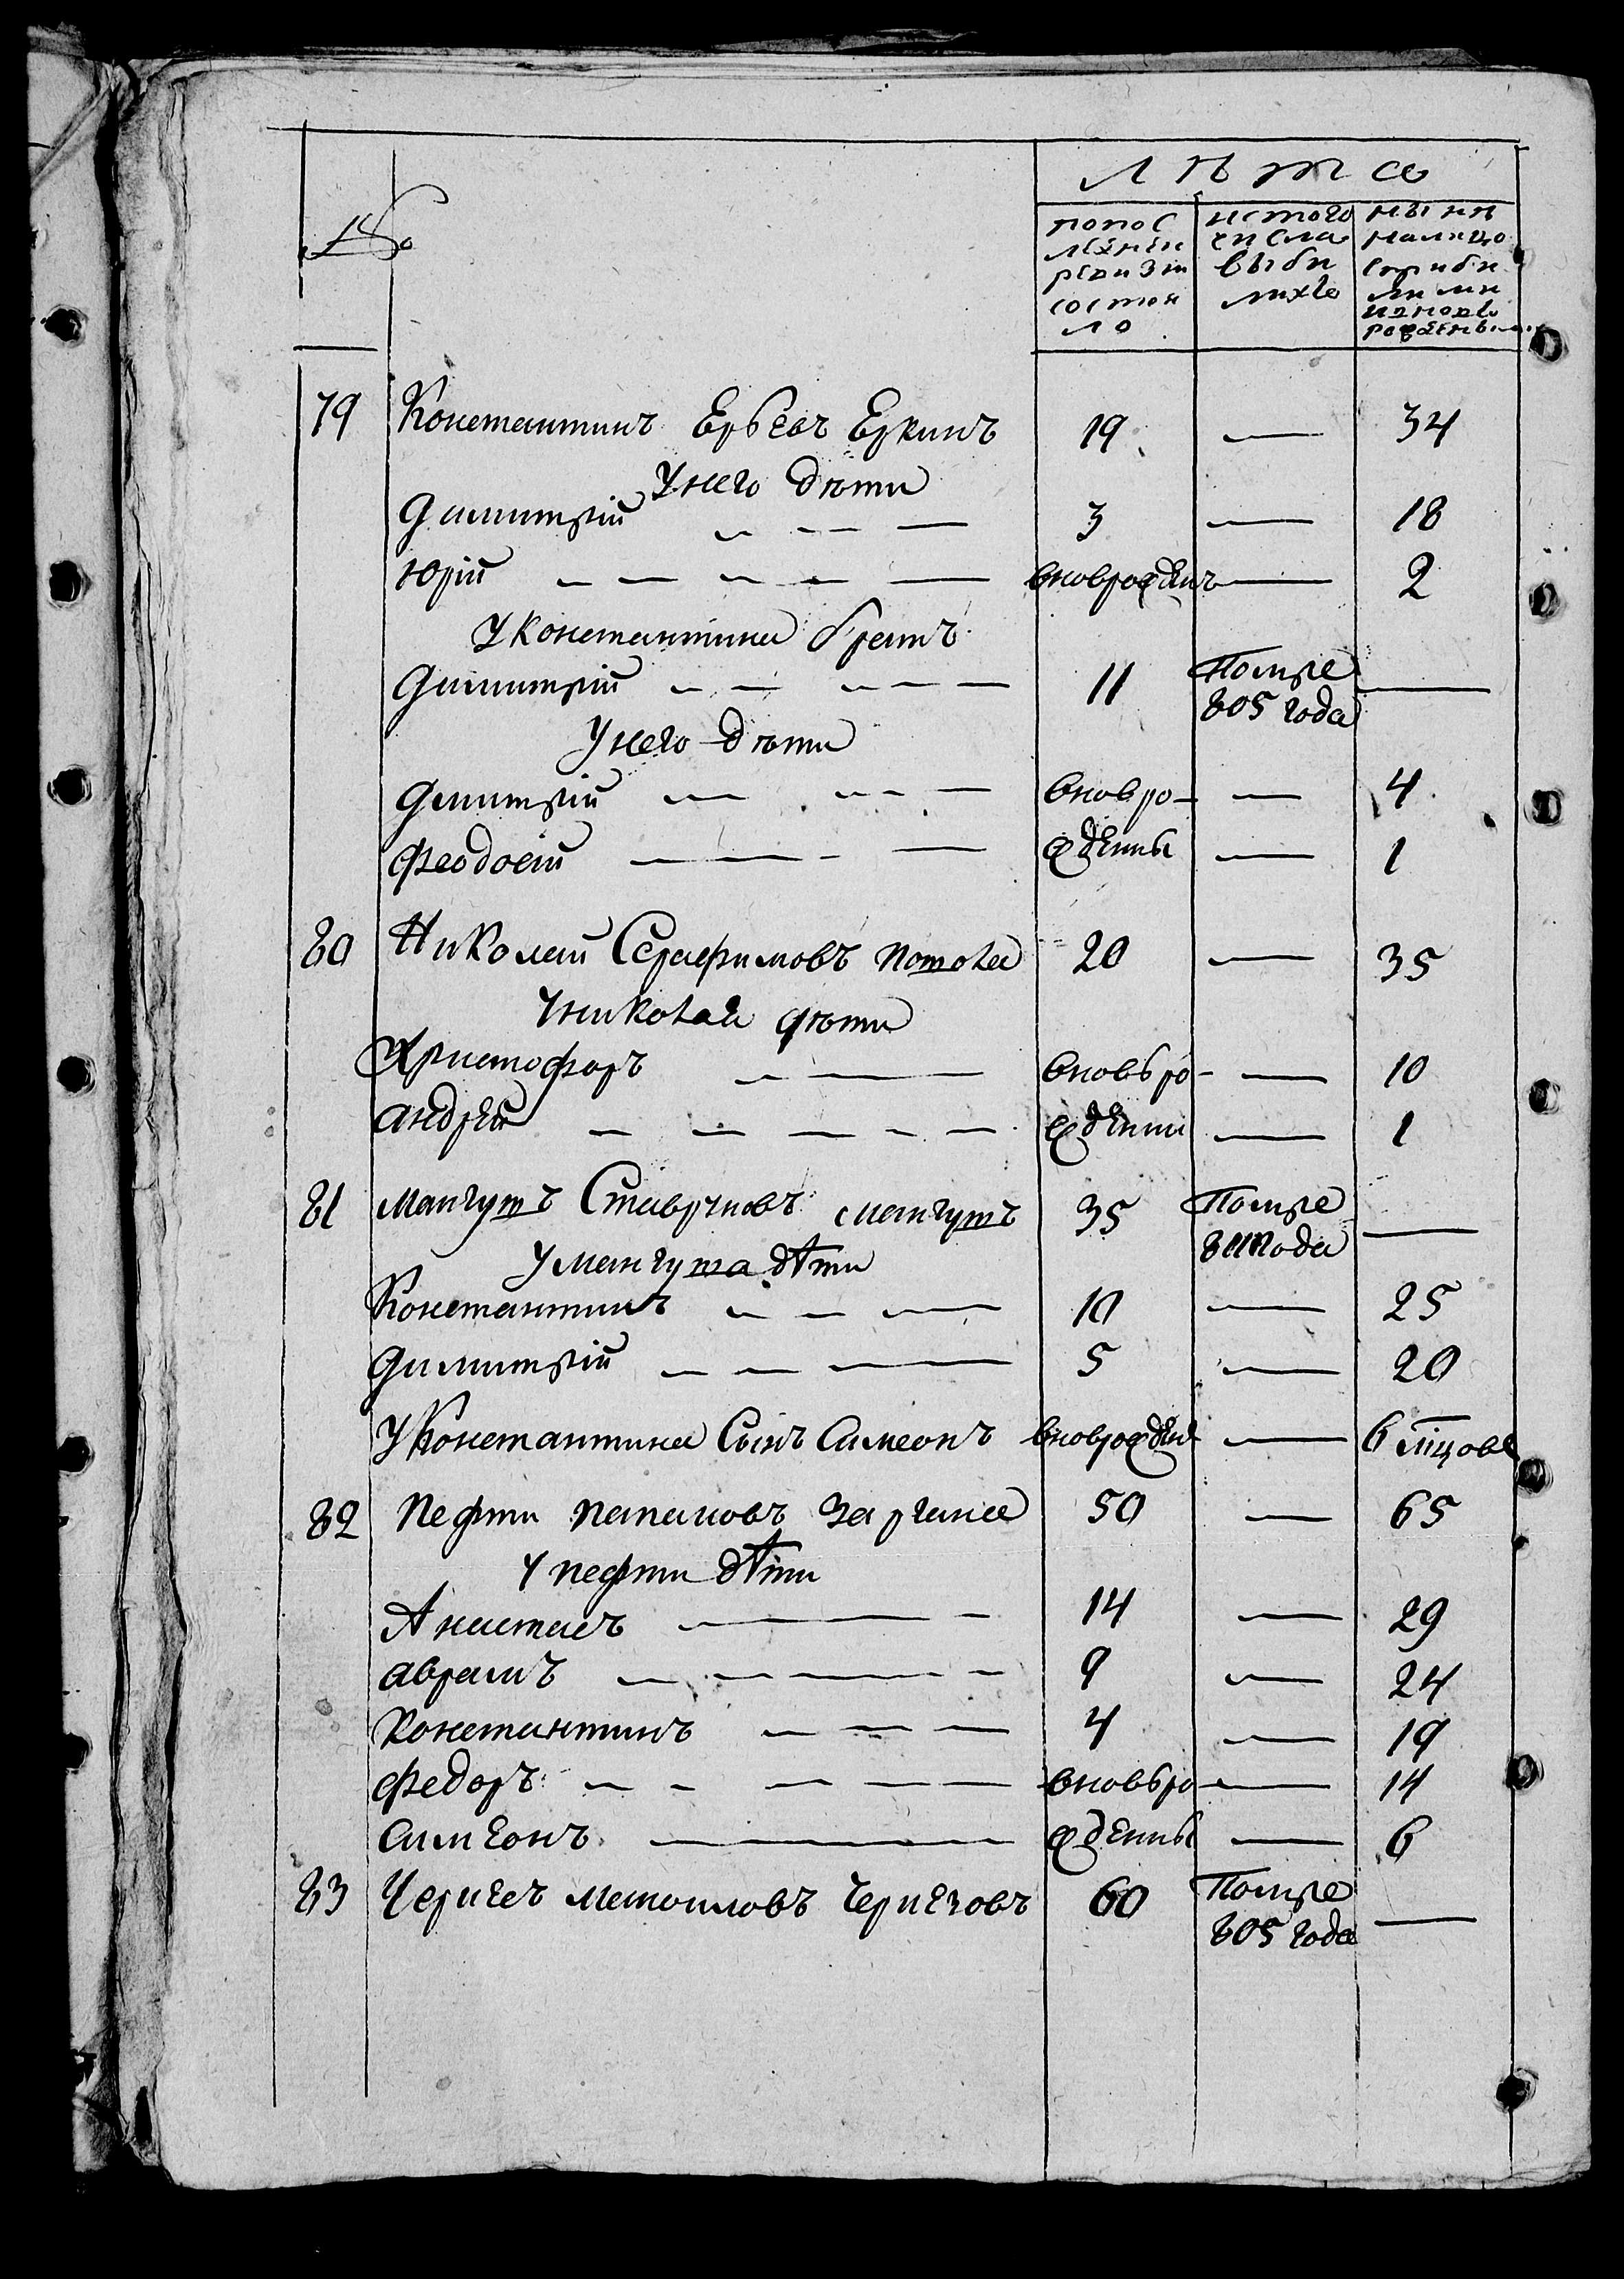 №
лѣта
попос
лѣднѣи
ревизіи
состоя
ло
истого
числа
выбы
лихъ
нынѣ
налицо
сприбы
лыми
ивновь
рождеными
79 Константинъ Ербевъ Еркинъ 19 — 34
Унего дѣти
Димитрій — — — 3 — 18
Юрій — — — — — вновърожденъ — 2
У константина братъ
Димитрій — — — — — 11 Помре —
805 года
Унего дѣти
Димитрій — — — — вновъро- — 4
Феодосій — — — — жденны — 1
80 Николай Серафимовъ потоха 20 — 35
У николая дѣти
Христофоръ — — — вновьро- — 10
андрей — — — — — жденни — 1
81 Мангутъ Ставриновъ мангутъ 35 Помре —
811 года
У мангута дѣти
Константинъ — — — 10 — 25
Димитрій — — — 5 — 20
У Константина Сынъ Симеонъ вновърожден — 6 мцовъ
82 Пефти папановъ 50 — 65
У пефти дѣти
Анастасъ — — 14 — 29
аврамъ — — — — — 9 — 24
константинъ — — — 4 — 19
Федоръ — — — — — вновьро — 14
симеонъ — жденны — 6
83 Черигез 60 Помре —
805 года